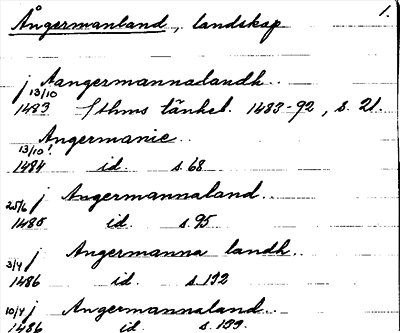 Ångermanland, landskap 1.
j Aangermannalandh..
13/10
1483 Sthms tänkeb. 1483-92, s. 21.
Angermanie..
13/10!
1484 id. s. 68
j Angermannaland..
25/6
1485 id. s. 95
j Angermanna landh..
3/4
1486 id. s. 192
10/4 j Angermannaland..
1486 id. s. 199.